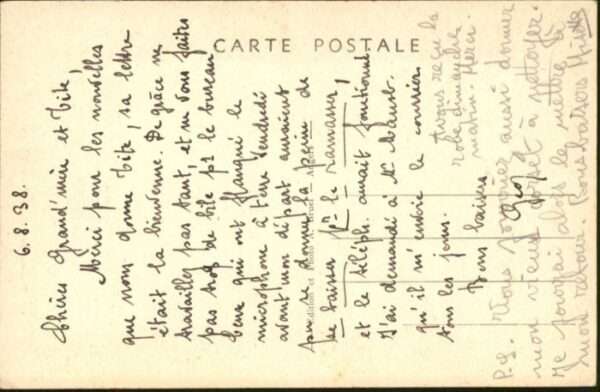 CARTE POSTALE
6.8.38.
Chères Grand'mère et Tite,
Merci pour les nouvelles
que nous donne Tite, sa lettre
était la bienvenue. De grâce ne
travailles pas tant, et ne vous faites
pas trop de bile pr le bureau
Ceux qui ont flanqué le
microphone à terre Vendredi
avant mon départ auraient
pu se donner la peine de
se baisser pr le ramasser,
et le téléph. aurait fonctionné
J'ai demandé à M.
qu'il m'envoie le courrier
tous les jours.
Bons baisers
Avons reçu la
robe dimanche
matin. Merci.
P.S. Vous pourriez aussi donner
mon vieux à nettoyer.
Je pourrai alors le mettre à
mon retour. Bons baisers